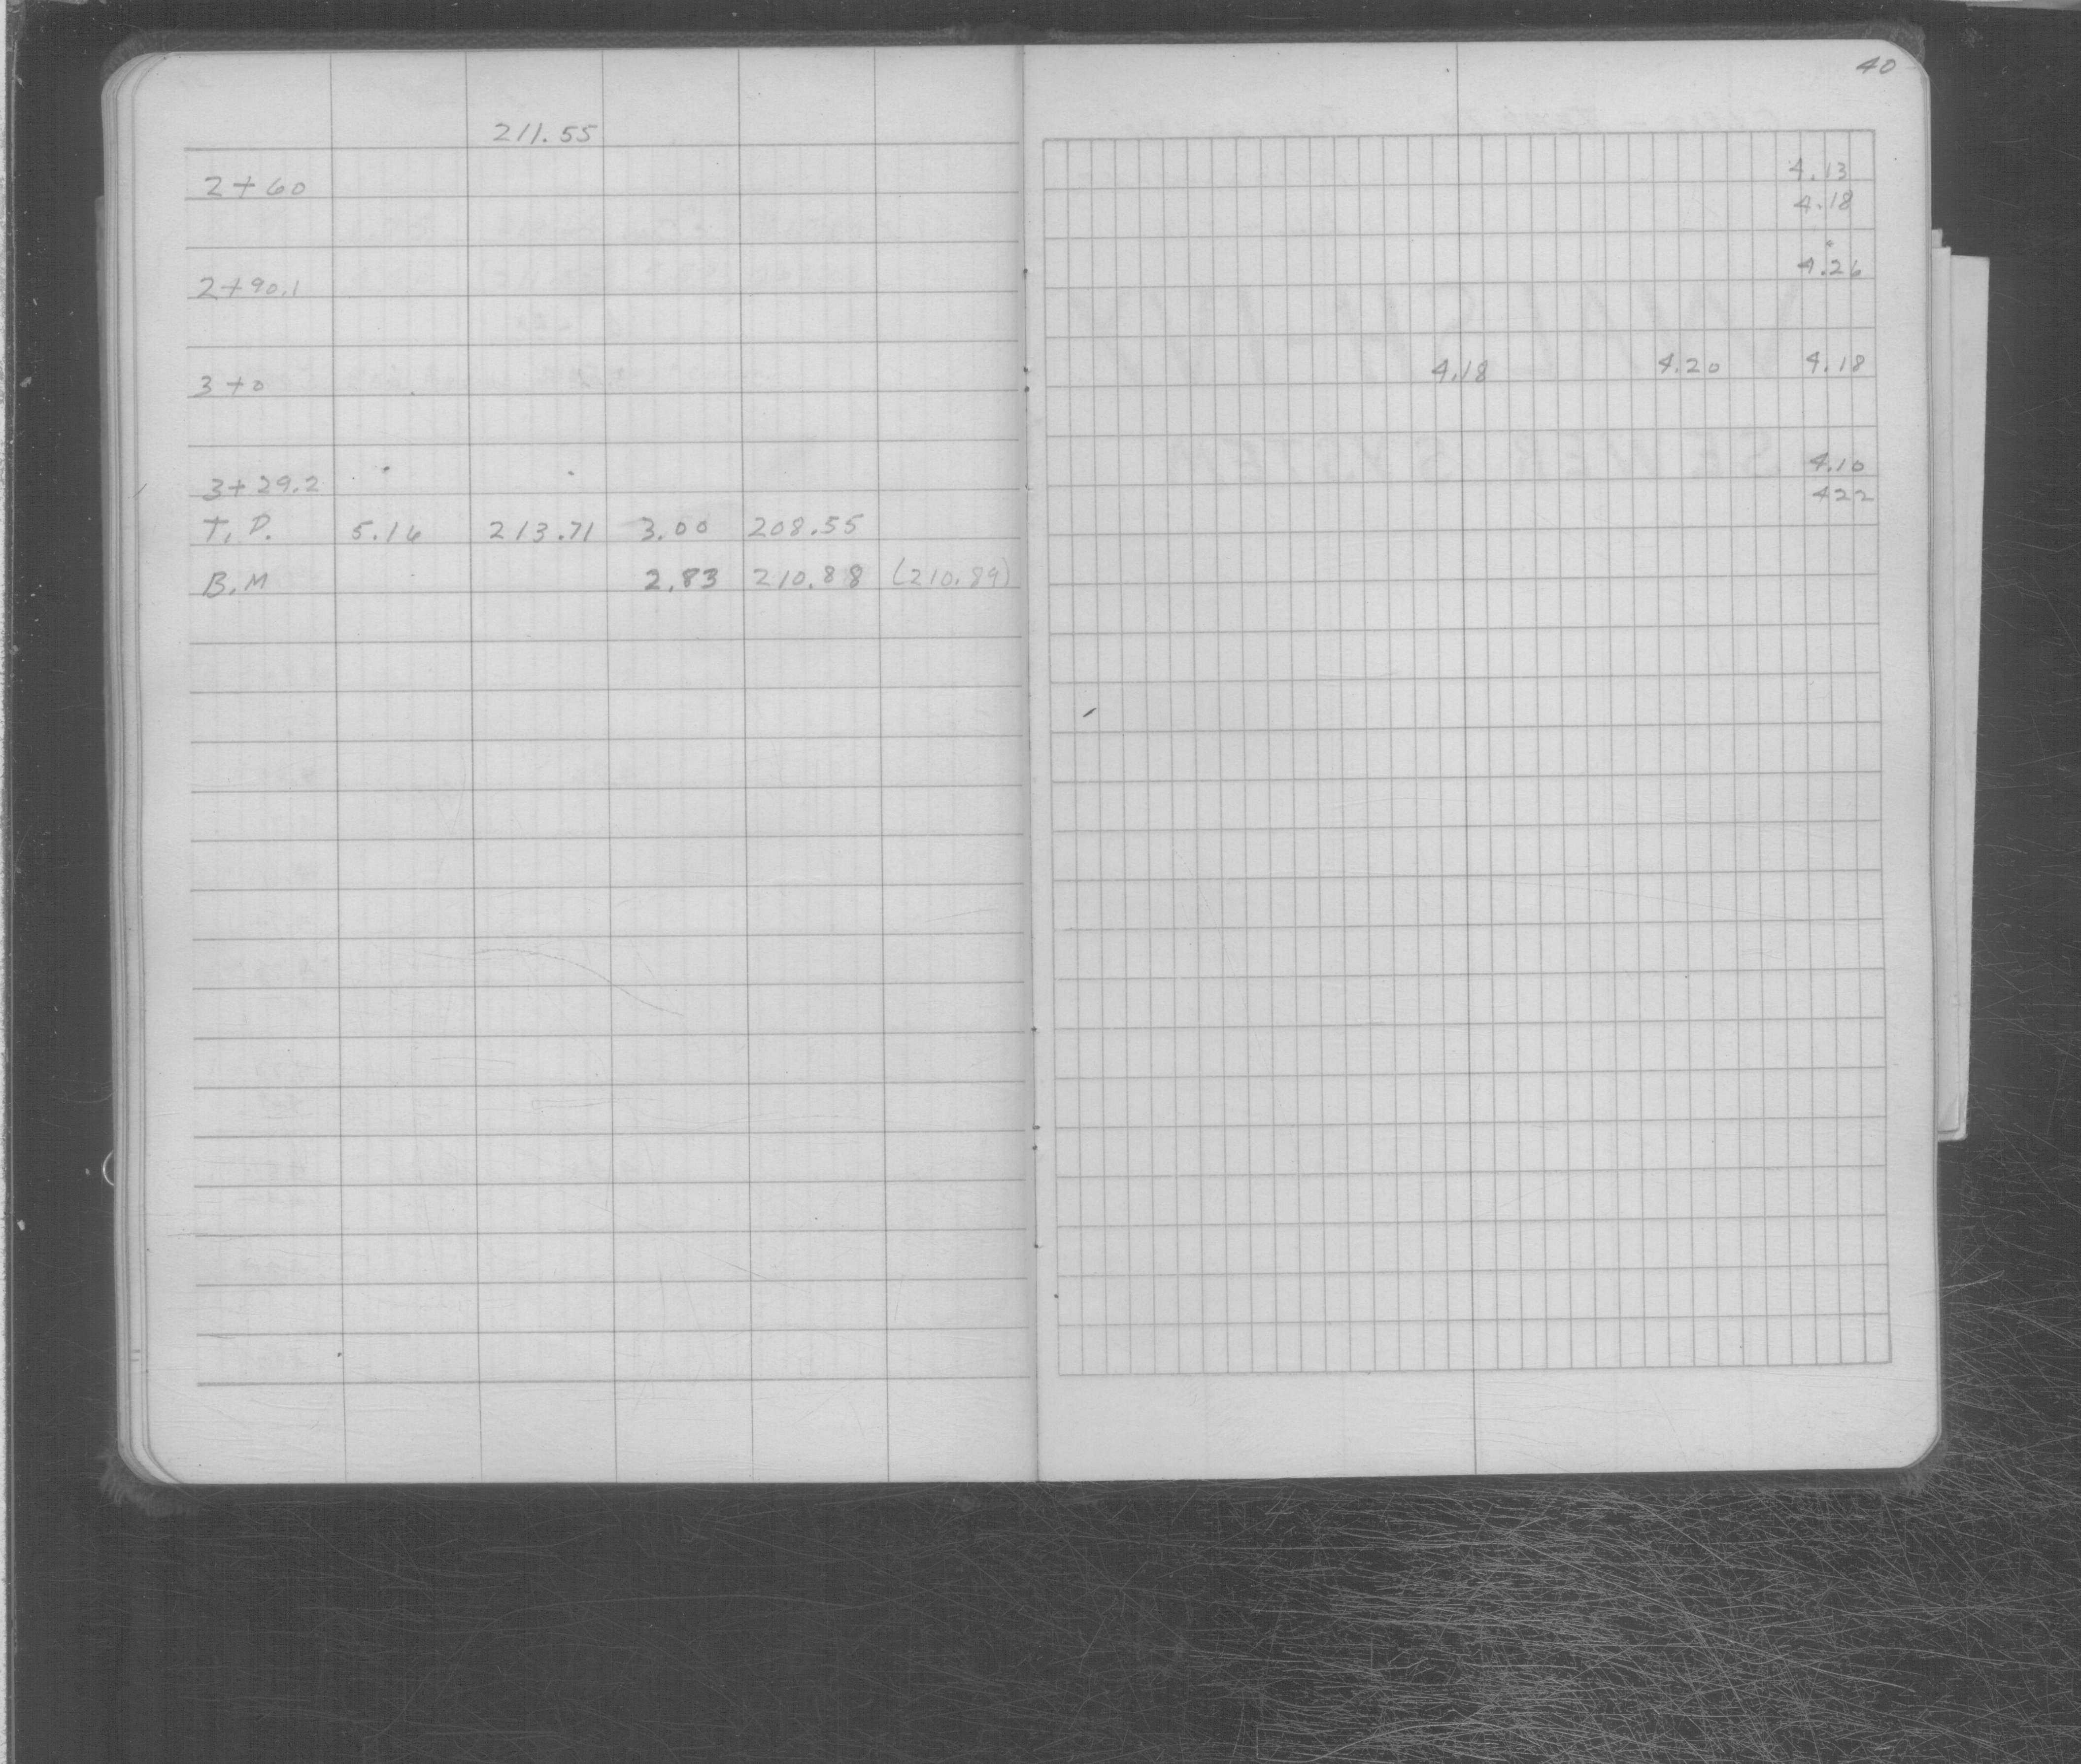 40
211.55
2+60 4.13
4.18
2+90.1 4.26
3+0 4.18 4.20 4.18
3+29.2 4.10
T.P. 5.16 213.71 3.00 208.55 422
B.M 2.83 210.88 (210.89)